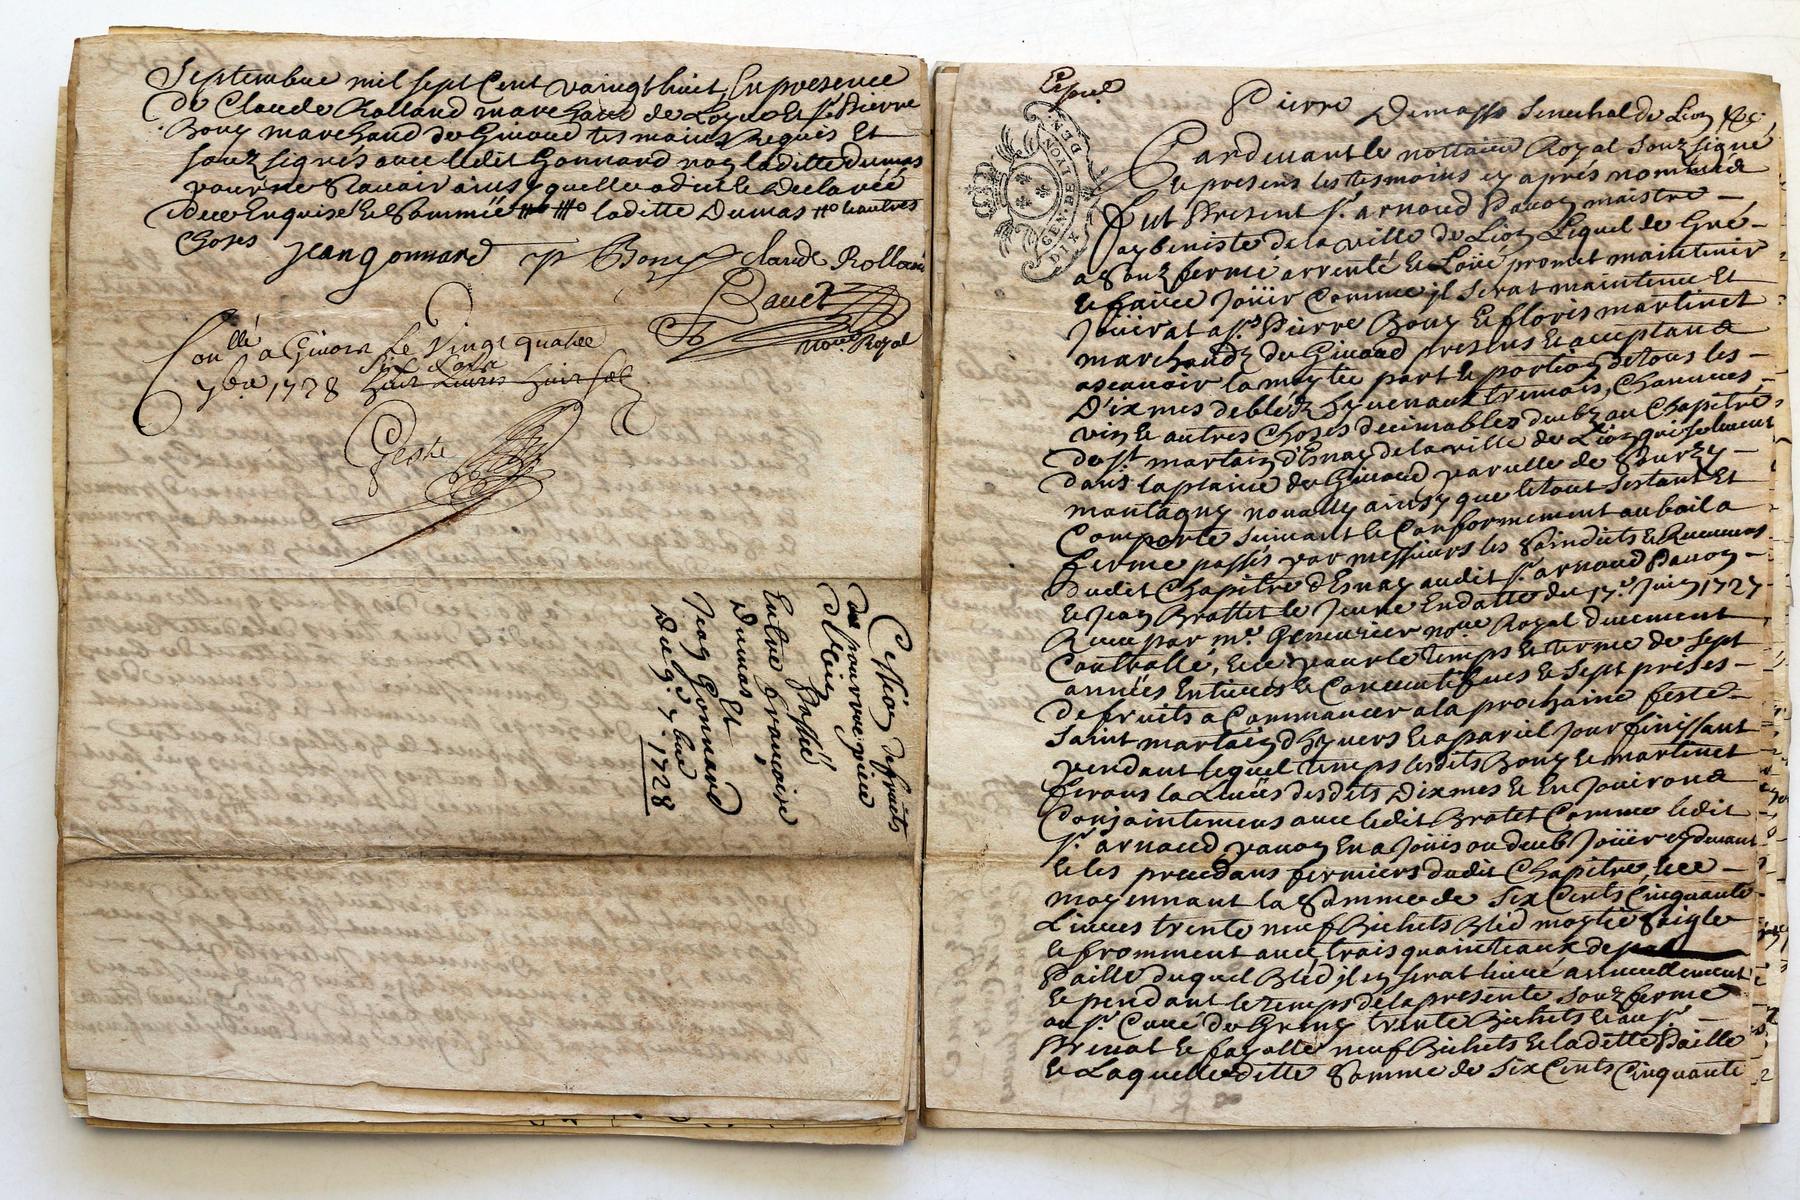 Septembre mil sept Cent vaingt huit, En presence
de Claude Rolland marchand de Loyre Et sr. Pierre
Bony marchand de Givord tesmoins Requis Et
souz signés avec ledit Gonnard non laditte dumas
pour ne scavoir ainsy quelle a dit et declarée
de ce Enquise Et Sommée laditte Dumas
choses Jean gonnard P Bony Claude Rolland
Bauet
nore. Royal
Conllé a Givors Le Vingt quatre
7bre 1728
Geste
Cession de fruits
pour
Passée
Entre françoise
Dumas Et
Jean Gonnard
Du 9e. 7bre
1728
Expié.
GEN. DE LYON
DIX DEN.
Pierre Demasso Senechal de Lion &c.
Pardevant le nottaire Royal souzsigné
Et presens les tesmoins cy aprés nommés
fut Present sr. arnaud Pavon maistre
de la ville de Lion Lequel de Gré
a souz fermé arrenté Et Loüé promet maintenir
Et faire Joüir Comme il serat maintenu Et
Jouirat a srs Pierre Bony Et floris martinet
marchands de Givord presens Et acceptans
ascavoir la moytié part Et portion de tous les
Dixmes de bleds hyvernaux tremois, Chanvres,
vin Et autres choses decimables deubz au Chapitre
de st. martain d'Esnay de la ville de Lion qui se levent
dans la plaine de Givord varelle de Bourzy
montagny noually ainsy que le tout sestant Et
Comporte suivant Et Conformement au bail a
ferme passés par messieurs les saindicts Et
dudit Chapitre d'Esnay audit sr. arnaud Pavon
Et Jean Brottet le Jeune En datte du 17e. Juin 1727
Receu par me. nore. Royal duement
Controllé, Et ce pour le temps Et terme de sept
années Entieres Et Consecutifves Et sept prises
de fruits a Commancer a la prochaine feste
saint martain d'hyvers Et a pariel Jour finissant
pendant lequel temps lesdits Bony Et martinet
ferons la Levées desdits Dixmes Et En Jouirons
Conjointement avec ledit Brotet Comme ledit
sr. arnaud pavon En a Joüis ou deub Joüir cy devant
Et les precedans fermiers dudit Chapitre, Et ce
moyennant la somme de six Cents Cinquante
Livres trente neuf Bichets Bléd moytié saigle
Et fromment avec trois quainteaux de
Paille duquel Bléd il En serat livré annuellement
Et pendant le temps de la presente souz ferme
au sr. Curé de Grigny trente Bichets Et au sr.
Et fayolle neuf Bichets Et laditte Paille
Et Laquelle ditte somme de six Cents Cinquante